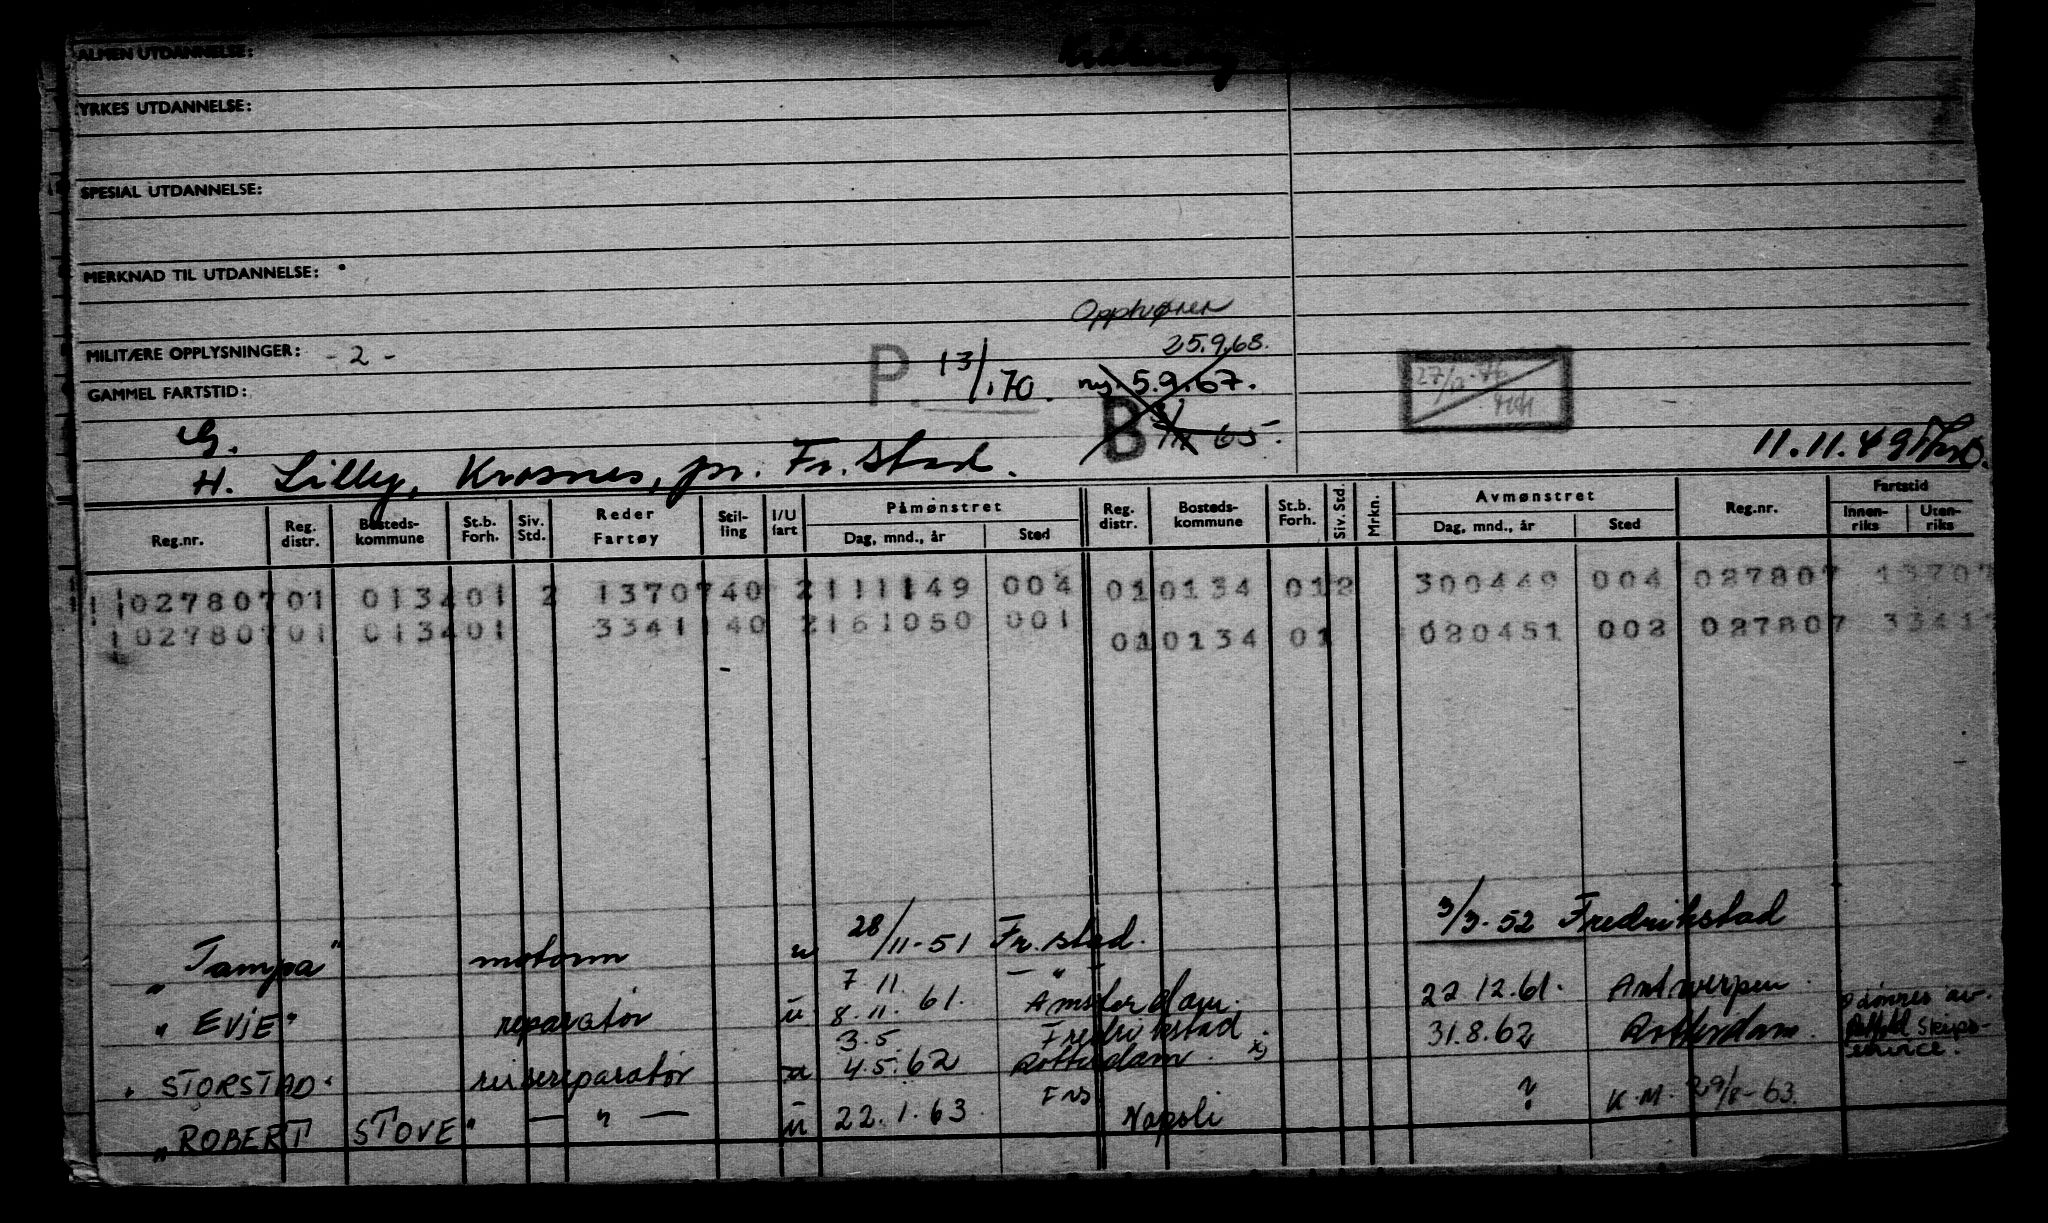 ALMEN UTDANNELSE:
YRKES UTDANNELSE:
SPESIAL UTDANNELSE:
MERKNAD TIL UTDANNELSE:
Opphører
25.9.68.
MILITÆRE OPPLYSNINGER: - 2 -
P. 13/1.70. ny. 5.9.67.
GAMMEL FARTSTID:
B 65.
27/12-76
G.
H. Lilly, Krosnes, pr. Fr.stad. 11.11.49
Reg.nr. Reg. distr. Bosteds-kommune St.b. Forh. Siv. Std. Reder Fartøy Stil-ling I/U fart Påmønstret Dag, mnd., år Sted Reg. distr. Bosteds-kommune St.b. Forh. Siv. Std. Mrkn. Avmønstret Dag, mnd., år Sted Reg.nr. Fartstid Innen-riks Uten-riks
1 1 027807 01 0134 01 2 13707 40 2 111149 004 01 0134 01 2 300449 004 027807 13707
1 027807 01 0134 01 3341 40 2 161050 001 01 0134 01 020451 002 027807 3341
"Tampa" motorm u 28/11-51 Fr.stad. 3/3.52 Fredrikstad
7.11. — " —
"EVJE" reparatør u 8.11.61. Amsterdam. 22.12.61. Antwerpen. lønnes av.
3.5. Fredrikstad
"STORSTAD" reisereparatør u 4.5.62 Rotterdam. 31.8.62 Rotterdam. Skips-
service.
"ROBERT STOVE" — " — u 22.1.63. Napoli ? K.M. 29/8-63.